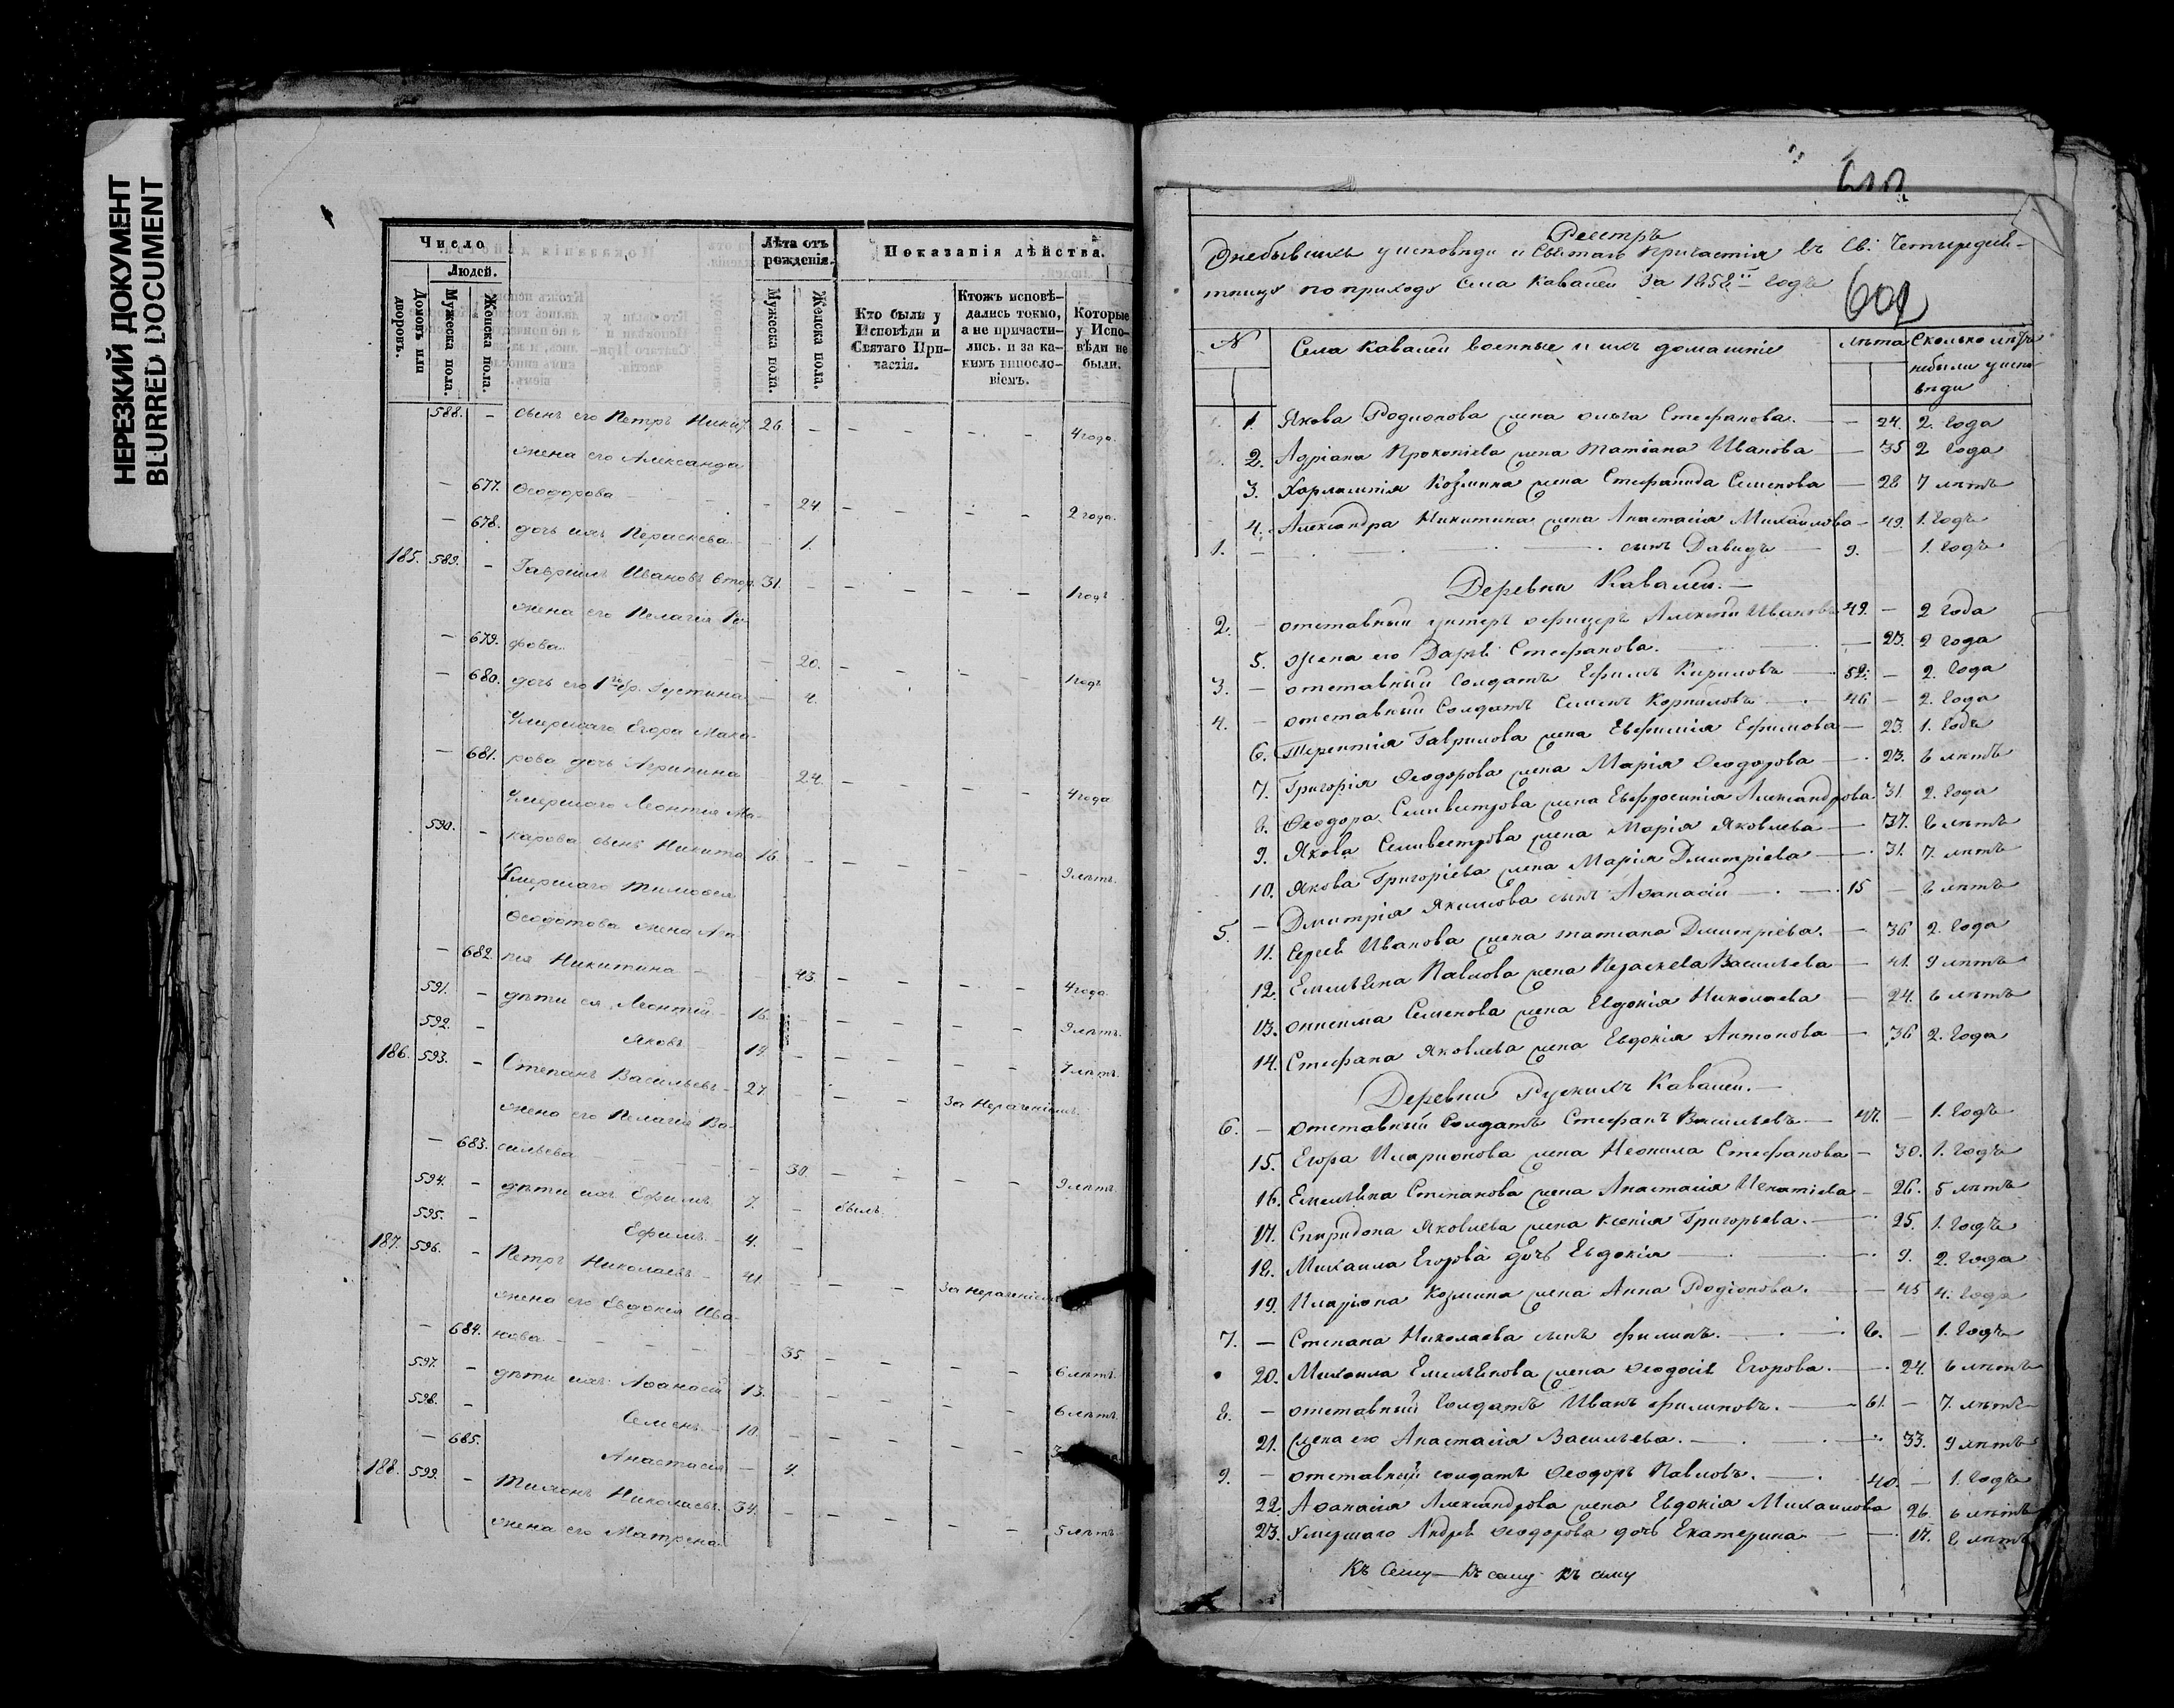 НЕРЕЗКИЙ ДОКУМЕНТ
BLURRED DOCUMENT
Число
Людей.
Домовъ или дворовъ.
Мужеска пола.
Женска пола.
Лѣта отъ рожденія.
Мужеска пола.
Женска пола.
Показанія дѣйства.
Кто были у Исповѣди и Святаго Причастія.
Ктожъ исповѣ-
дались токмо,
а не причасти-
лись. и за ка-
кимъ винosло-
віемъ.
Которые
у Испо-
вѣди не
были.
588. - сынъ его Петръ Никит 26. - - - - - 4 года.
жена его Александра
- 677. Ѳеодорова - - 24 - - - - 2 года.
- 678. дочь ихъ Параскева - 1.
185. 589. - Гавріилъ Ивановъ 31. - - - - - 1 годъ
жена его Пелагія
- 679. фова - 20. - - - - 1 годъ
- 680. дочь его 1го бр. Іустина - 4.
Умершаго Егора Мака-
- 681. рова дочь Агрипина - 24. - - - - 4 года
Умершаго Леонтія Ма-
590. - карова сынъ Никита 16. - - - - - 9 лѣтъ.
Умершаго Тимоѳея
Ѳеодотова жена
- 682. Никитина - - 43. - - - - 4 года.
591. - дѣти ея Леонтій - 16. - - - - 9 лѣтъ.
592. - Яковъ - 14. - - - - 7 лѣтъ.
186. 593. - Степанъ Васильевъ - 27. - - - за нераченіемъ
жена его Пелагія Ва-
- 683. сильева - - 30. - - - - 9 лѣтъ.
594. - дѣти ихъ Ефимъ 7. - былъ.
595. - Ефимъ - 4. -
187. 596. - Петръ Николаевъ - 41. - - - за нераченіемъ
жена его Евдокія Ива-
- 684. нова - - - 35. - - - - 6 лѣтъ.
597. - дѣти ихъ Аѳанасій 13. - - - - 6 лѣтъ.
598. - Семенъ - 10. - - - -
- 685. Анастасія - 4.
188. 599. - Николаевъ 34. - - - - 5 лѣтъ.
жена его Матрена
Реестръ
О небывшихъ у исповѣди и Святаго Причастія въ Св. Четыредеся-
тницу по приходу Села Кавалей за 1858й годъ
602
№ Села Кавалей военные и ихъ домашніе лѣта Сколько лѣтъ
небыли у испо-
вѣди
1. Якова Родіонова жена Ольга Стефанова. - - 24. 2. года
2. Адріана Прокопіева жена Татіана Иванова - 35 2 года
3. Харлампія Козмина жена Стефанида Семенова - 28 7 лѣтъ
4. Александра Никитина жена Анастасія Михайлова - 49. 1. годъ
1. - сынъ Давидъ - 9. - 1. годъ
Деревни Кавалей. -
2. - отставный унтеръ офицеръ Алексѣй Ивановъ 49. - 2 года
5. жена его Дарья Стефанова. - 23. 2 года
3. - отставный солдатъ Ефимъ Кириловъ - 52. - 2. года
4. - отставный Солдатъ Семенъ Корниловъ - 46 - 2. года
6. Терентія Гаврилова жена Евфимія Ефимова - 23. 1. годъ
7. Григорія Ѳеодорова жена Марія Ѳеодорова - 23. 6 лѣтъ
8. Ѳеодора Селивестрова жена Евфросинія Александрова 31. 2. года
9. Якова Селивестрова жена Марія Яковлева - 37. 6 лѣтъ
10. Якова Григоріева жена Марія Дмитріева - 31. 7. лѣтъ
5. - Дмитрія Якимова сынъ Аѳанасій - 15 - 6 лѣтъ
11. Сергѣя Иванова жена Татіана Дмитріева. - 36 2. года
12. Емельяна Павлова жена Параскева Васильева - 41. 9 лѣтъ
13. Онисима Семенова жена Евдокія Николаева - 24. 6 лѣтъ
14. Стефана Яковлева жена Евдокія Антонова - 36 2. года
Деревни Рускихъ Кавалей. -
6. - отставный Солдатъ Стефанъ Васильевъ - 47. - 1. годъ
15. Егора Иларионова жена Неонила Стефанова - 30. 1. годъ
16. Емельяна Степанова жена Анастасія Игнатіева - 26. 5 лѣтъ
17. Спиридона Яковлева жена Ксенія Григорьева. - 25. 1. годъ
18. Михаила Егорова дочь Евдокія - 9. 2. года
19. Иларіона Козмина жена Анна Родіонова. - 45 4. года
7. - Степана Николаева сынъ Филипъ. - 6. - 1. годъ
20. Михаила Емельянова жена Ѳеодосія Егорова. - 24. 6 лѣтъ
8. - отставный Солдатъ Иванъ Филиповъ. - 61. - 7. лѣтъ
21. жена его Анастасія Васильева. - 33. 9 лѣтъ
9. - отставный солдатъ Ѳеодоръ Павловъ. - 40. - 1. годъ
22. Аѳанасія Александрова жена Евдокія Михаилова 26. 6 лѣтъ
23. Умершаго Андрея Ѳеодорова дочь Екатерина - 17. 6 лѣтъ
Къ сему - къ сему къ сему